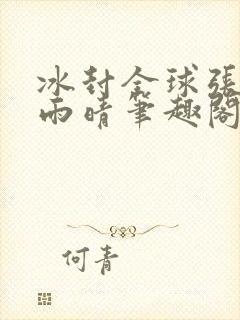 冰封全球張
雨晴筆趣閣
何青